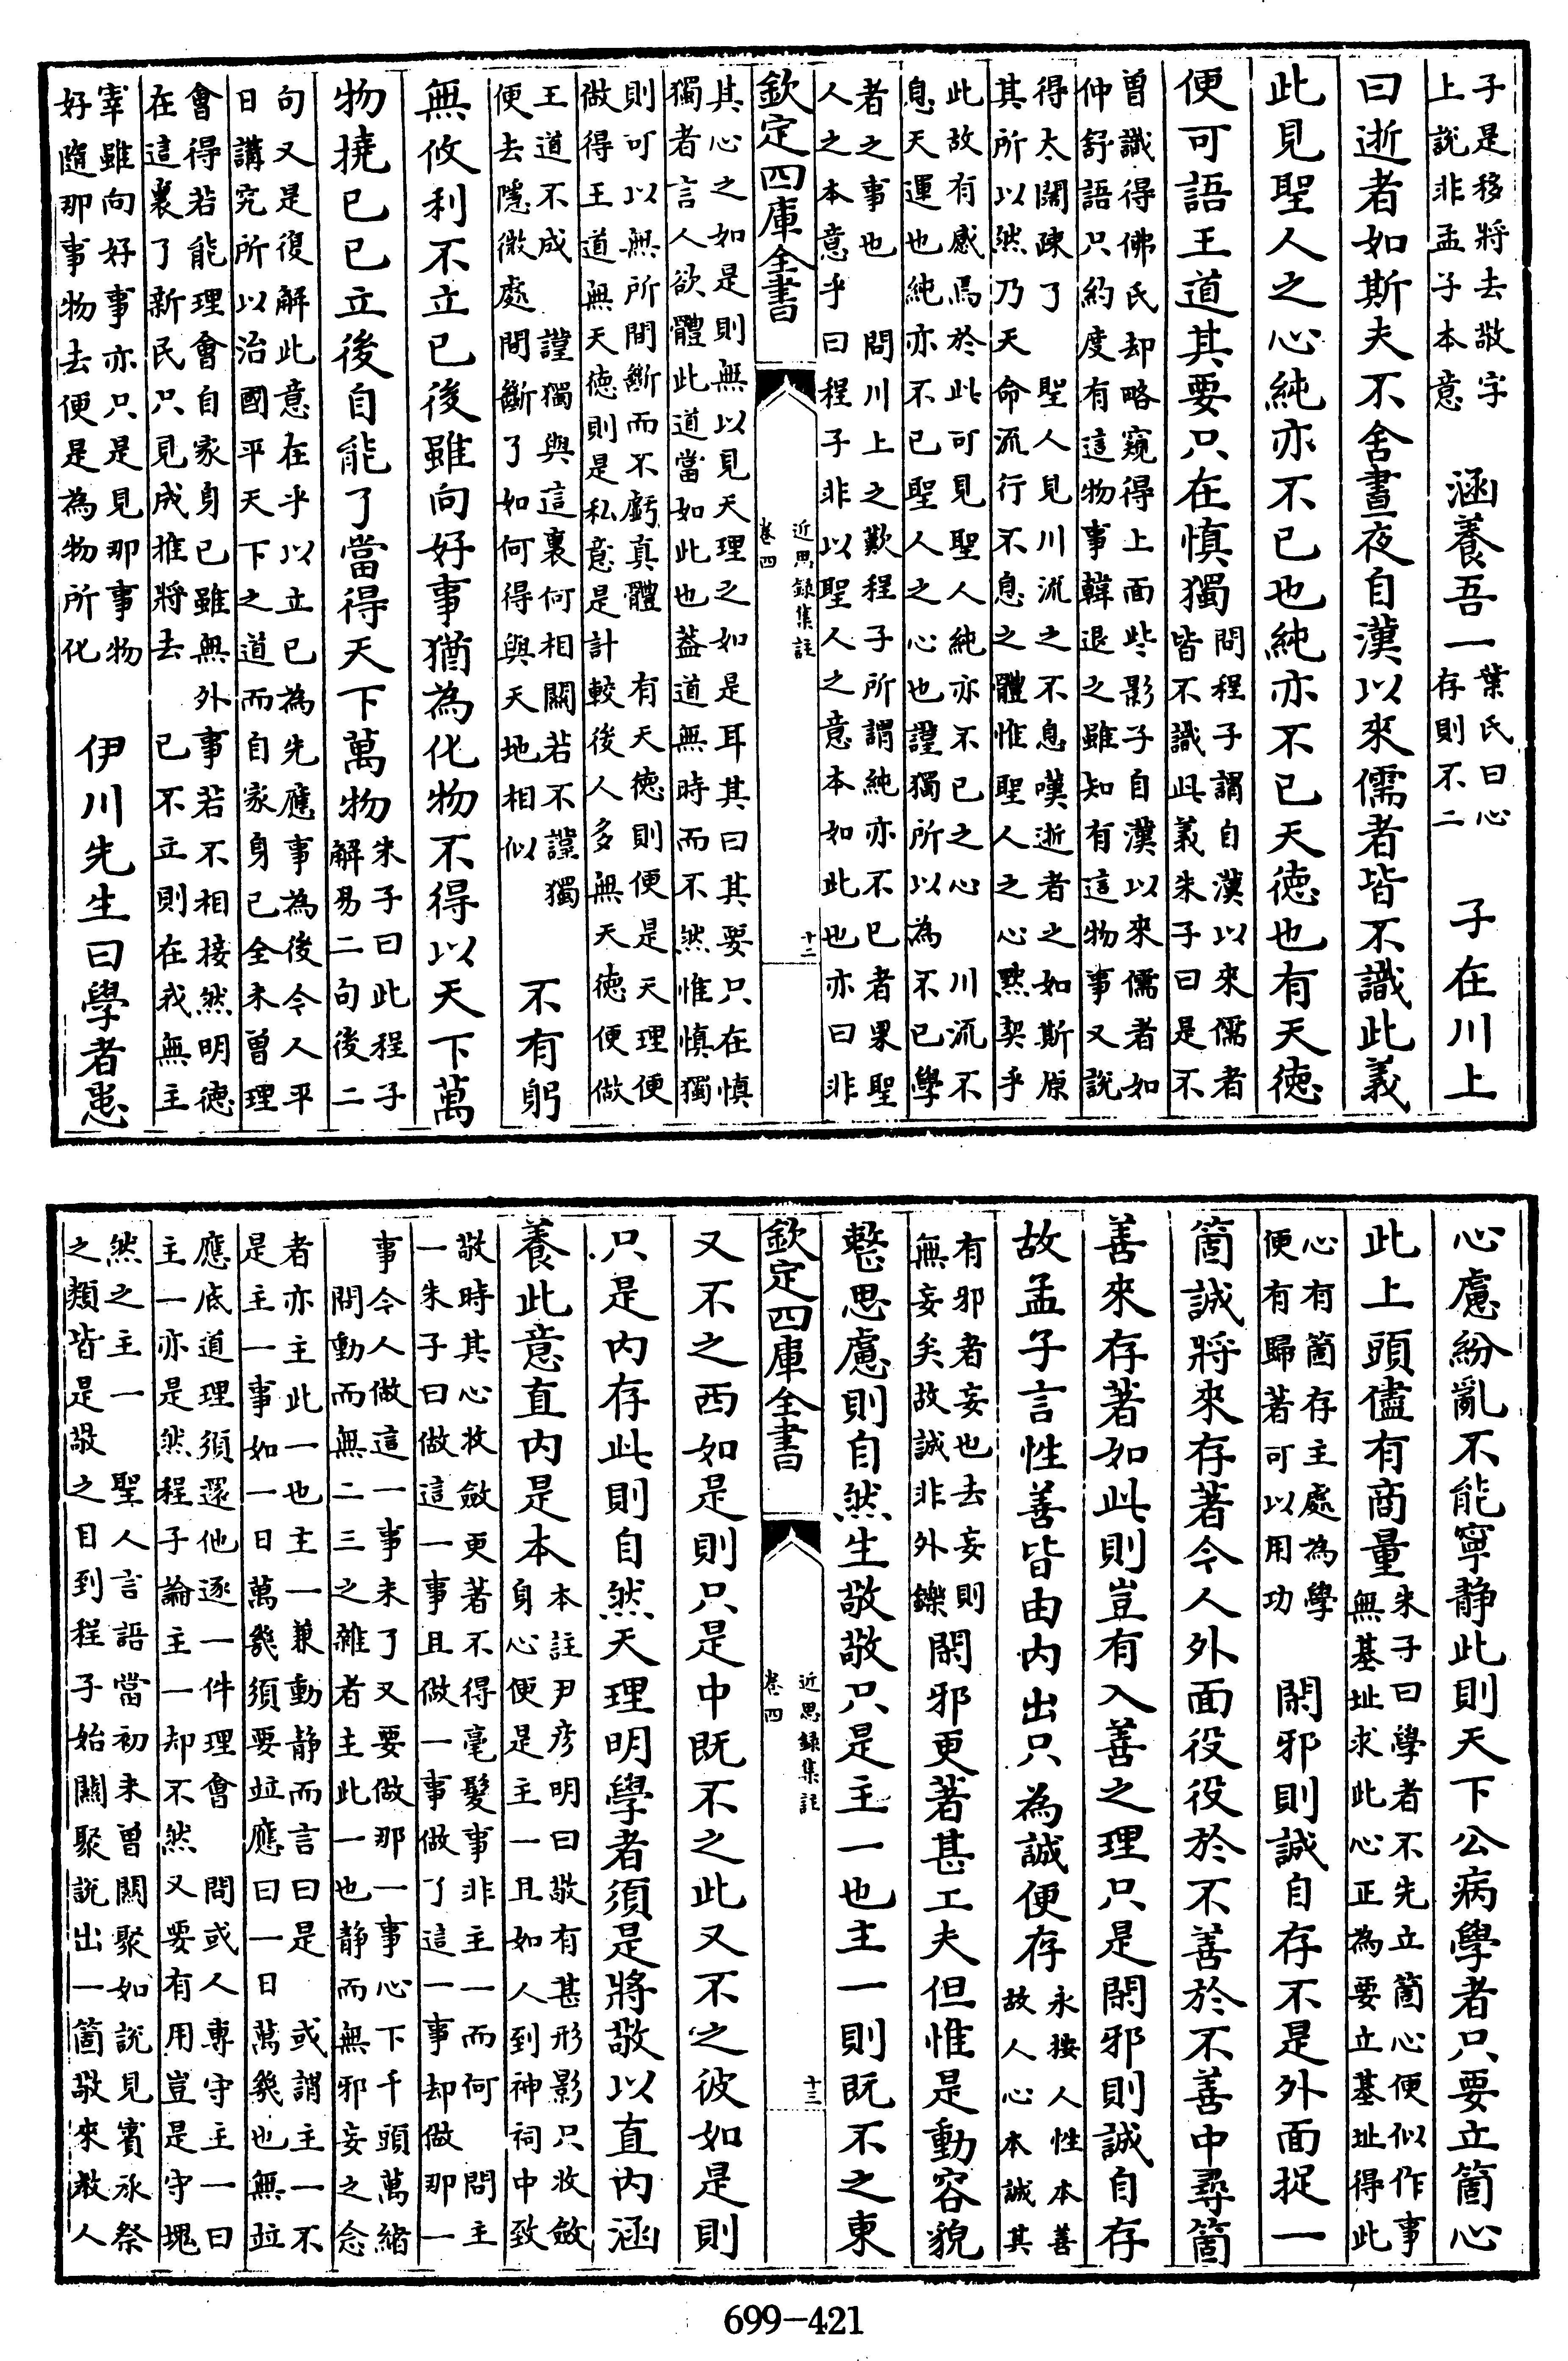 子是移將去敬字
上說非孟子本意
涵養吾一
葉氏曰心
存則不二
子在川上
曰逝者如斯夫不舍晝夜自漢以來儒者皆不識此義
此見聖人之心純亦不已也純亦不已天德也有天德
便可語王道其要只在慎獨
問程子謂自漢以來儒者
皆不識此義朱子曰是不
曽識得佛氏却略窺得上面些影子自漢以來儒者如
仲舒語只約度有這物事韓退之雖知有這物事又說
得太闊疎了 聖人見川流之不息嘆逝者之如斯原
其所以然乃天命流行不息之體惟聖人之心黙契乎
此故有感焉於此可見聖人純亦不已之心 川流不
息天運也純亦不已聖人之心也謹獨所以為不已學
者之事也 問川上之歎程子所謂純亦不已者果聖
人之本意乎曰程子非以聖人之意本如此也亦曰非
欽定四庫全書
近思錄集註
卷四
十二
其心之如是則無以見天理之如是耳其曰其要只在慎
獨者言人欲體此道當如此也葢道無時而不然惟慎獨
則可以無所間斷而不虧真體 有天德則便是天理便
做得王道無天德則是私意是計較後人多無天德便做
王道不成 謹獨與這裏何相關若不謹獨
便去隱微處間斷了如何得與天地相似
不有躬
無攸利不立已後雖向好事猶為化物不得以天下萬
物撓已已立後自能了當得天下萬物
朱子曰此程子
解易二句後二
句又是復解此意在乎以立已為先應事為後今人平
日講究所以治國平天下之道而自家身已全未曽理
會得若能理會自家身已雖無外事若不相接然明德
在這裏了新民只見成推將去 已不立則在我無主
宰雖向好事亦只是見那事物
好隨那事物去便是為物所化
伊川先生曰學者患
心慮紛亂不能寧静此則天下公病學者只要立箇心
此上頭儘有商量
朱子曰學者不先立箇心便似作事
無基址求此心正為要立基址得此
心有箇存主處為學
便有歸著可以用功
閑邪則誠自存不是外面捉一
箇誠將來存著今人外面役役於不善於不善中尋箇
善來存著如此則豈有入善之理只是閑邪則誠自存
故孟子言性善皆由内出只為誠便存
永按人性本善
故人心本誠其
有邪者妄也去妄則
無妄矣故誠非外鑠
閑邪更著甚工夫但惟是動容貌
整思慮則自然生敬敬只是主一也主一則既不之東
欽定四庫全書
近思錄集註
卷四
十三
又不之西如是則只是中既不之此又不之彼如是則
只是内存此則自然天理明學者須是將敬以直内涵
養此意直内是本
本註尹彦明曰敬有甚形影只收斂
身心便是主一且如人到神祠中致
敬時其心收斂更著不得毫髮事非主一而何 問主
一朱子曰做這一事且做一事做了這一事却做那一
事今人做這一事未了又要做那一事心下千頭萬緒
問動而無二三之雜者主此一也静而無邪妄之念
者亦主此一也主一兼動静而言曰是 或謂主一不
是主一事如一日萬幾須要竝應曰一日萬幾也無竝
應底道理須還他逐一件理會 問或人專守主一曰
主一亦是然程子論主一却不然又要有用豈是守塊
然之主一 聖人言語當初未曽關聚如說見賓承祭
之類皆是敬之目到程子始關聚說出一箇敬來教人
699-421